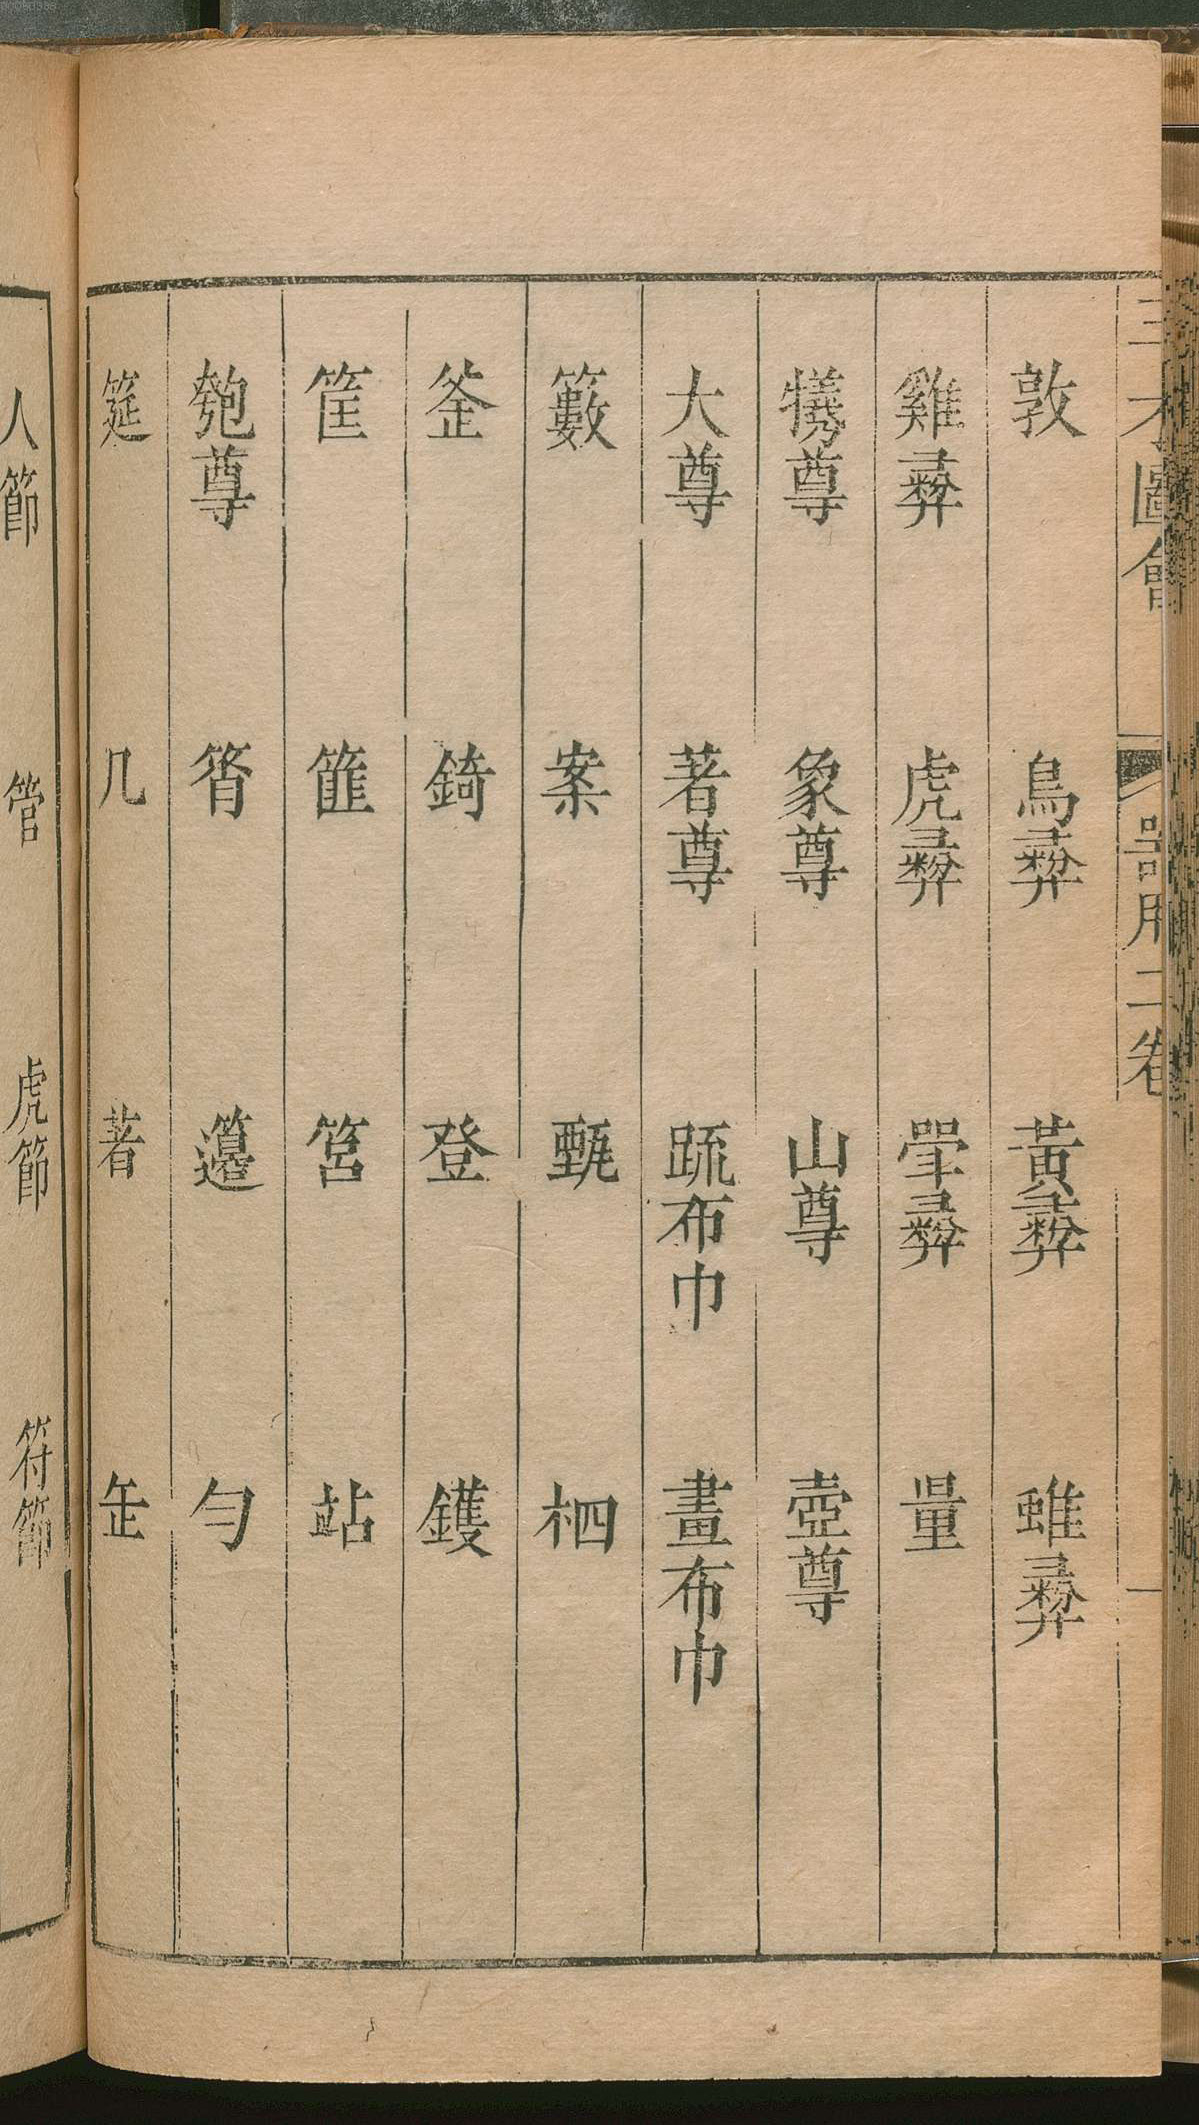 三才圖會 器用二卷 一
敦 鳥彝 黃彝 蜼彝
雞彝 虎彝 斝彝 量
犧尊 象尊 山尊 壺尊
大尊 著尊 疏布巾 畫布巾
籔 案 甒 柶
釜 錡 登 鑊
筐 篚 筥 坫
匏尊 筲 籩 勺
筵 几 著 缶
人節 管 虎節 符節